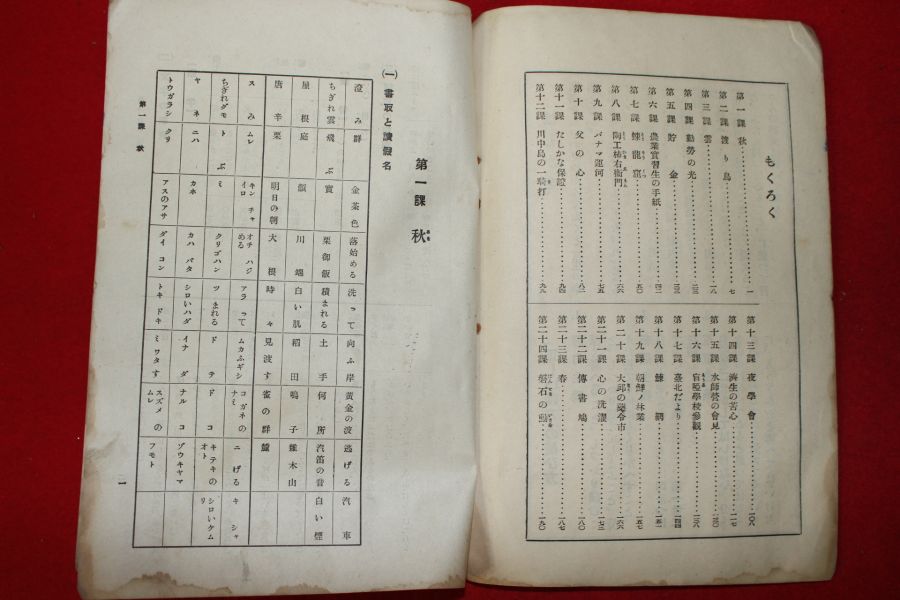 もくろく
第一課 秋 一
第二課 渡り鳥 七
第三課 雲 一八
第四課 勤勞の光 二三
第五課 貯金 三三
第六課 農業實習生の手紙 四二
第七課 蜍龍窟 五〇
第八課 陶工柿右衞門 六六
第九課 パナマ運河 七五
第十課 父の心 八二
第十一課 たしかな保證 九四
第十二課 川中島の一騎打 九八
第十三課 夜學會 一〇八
第十四課 濟生の苦心 一一七
第十五課 水師營の會見 一三〇
第十六課 盲啞學校參觀 一三八
第十七課 臺北だより 一四四
第十八課 鰊網 一五一
第十九課 朝鮮ノ林業 一五七
第二十課 大邱の藥令市 一六六
第二十一課 心の洗濯 一七三
第二十二課 傳書鳩 一八〇
第二十三課 春 一八七
第二十四課 磐石の 一九〇
第一課 秋
あき
(一) 書取と讀假名
澄み 群 金茶色 落始める 洗って 向ふ岸 黃金の波 逃げる 汽車
ちぎれ雲 飛ぶ 實 栗御飯 積まれる 土手 何所 汽笛の音 白い煙
屋根 庭 顏 川端 白い肌 稻田 鳴子 雜木山
唐辛 栗 明日の朝 大根 時々 見渡す 雀の群 麓
スみ ムレ キンチャイロ オチハジめる アラって ムカふギシ コガネのナミ ニげる キシャ
ちぎれグモ トぶ ミ クリゴハン ツまれる ドテ ドコ キテキのオト シロいケムリ
ヤネ ニハ カホ カハバタ シロいハダ イナダ ナルコ ゾウキヤマ
トウガラシ クリ アスのアサ ダイコン トキドキ ミワタす スズメのムレ フモト
第一課 秋
一